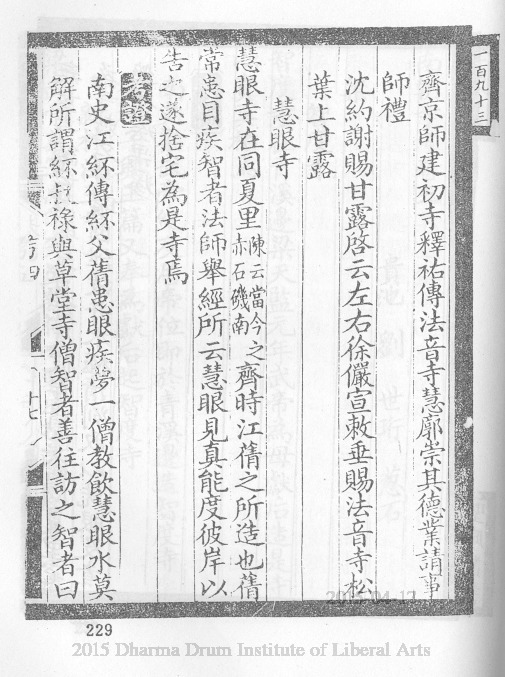 一百九十三
齊京師建初寺釋祐傳法音寺慧廓崇其德業請事
師禮
沈約謝賜甘露啓云左右徐儼宣敕垂賜法音寺松
葉上甘露
慧眼寺
慧眼寺在同夏里陳云當今之赤石磯南齊時江蒨之所造也蒨
常患目疾智者法師舉經所云慧眼見真能度彼岸以
告之遂捨宅為是寺焉
考證
南史江紑傳紑父蒨患眼疾夢一僧教飲慧眼水莫
解所謂紑叔祿與草堂寺僧智者善往訪之智者曰
寺四
十七
229
2015-04-17
2015 Dharma Drum Institute of Liberal Arts